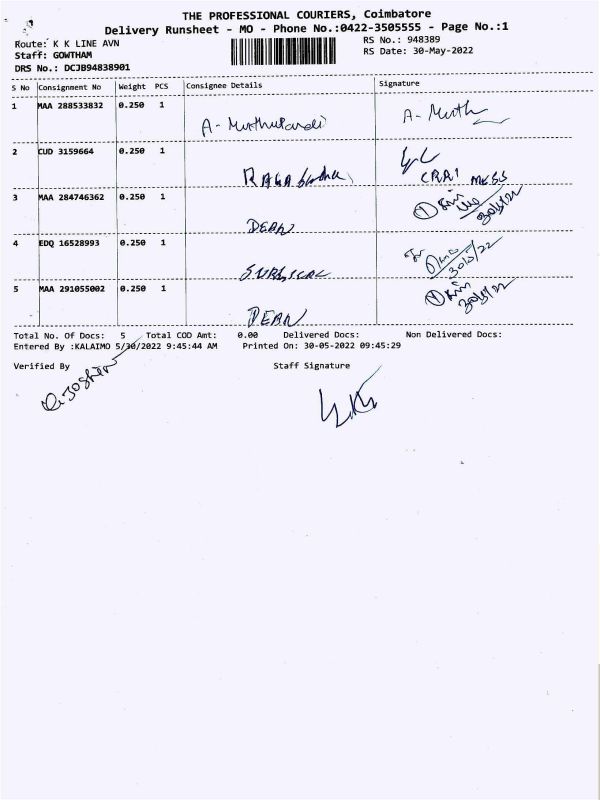 THE PROFESSIONAL COURIERS, Coimbatore
Delivery Runsheet - MO - Phone No.:0422-3505555 - Page No.:1
Route: K K LINE AVN RS No.: 948389
Staff: GOWTHAM RS Date: 30-May-2022
DRS No.: DCJB94838901
S No Consignment No Weight PCS Consignee Details Signature
1 MAA 288533832 0.250 1
A- Muthupandi A- Muth
2 CUD 3159664 0.250 1
CRRI MESS
3 MAA 284746362 0.250 1
DEAN 30/5/22
4 EDQ 16528993 0.250 1
SURGICAL 30/5/22
5 MAA 291055002 0.250 1
DEAN 30/5/22
Total No. Of Docs: 5 Total COD Amt: 0.00 Delivered Docs: Non Delivered Docs:
Entered By :KALAIMO 5/30/2022 9:45:44 AM Printed On: 30-05-2022 09:45:29
Verified By Staff Signature